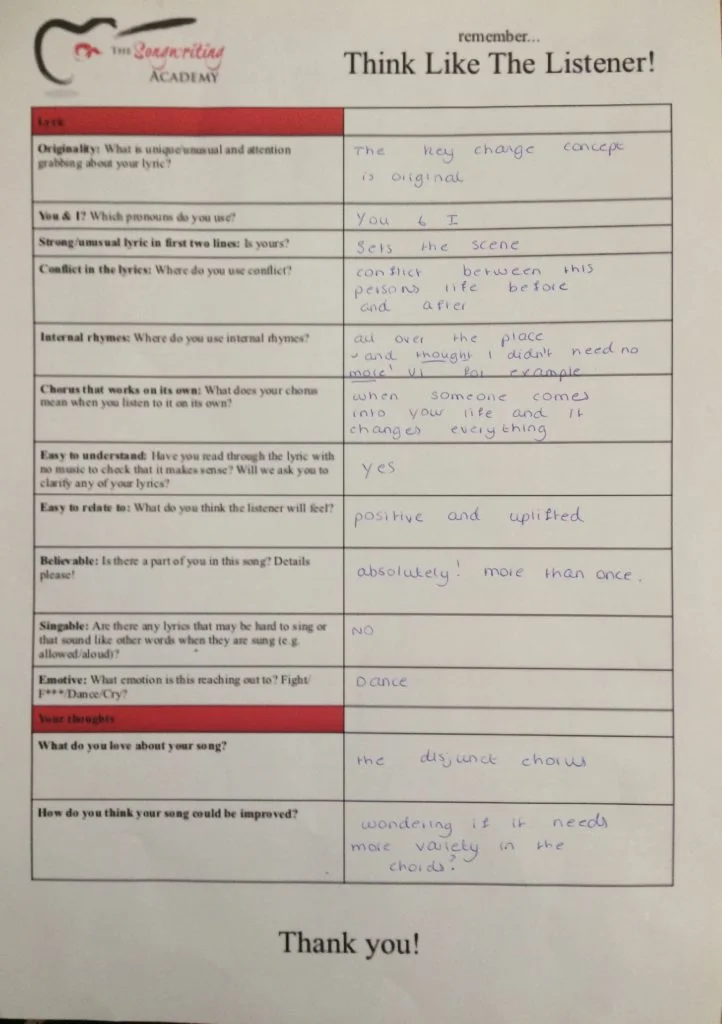 THE Songwriting
ACADEMY
remember...
Think Like The Listener!
Lyric
Originality: What is unique/unusual and attention
grabbing about your lyric?
The key change concept
is original
You & I? Which pronouns do you use?
You & I
Strong/unusual lyric in first two lines: Is yours?
Sets the scene
Conflict in the lyrics: Where do you use conflict?
conflict between this
persons life before
and after
Internal rhymes: Where do you use internal rhymes?
all over the place
'and thought I didn't need no
more' V1 for example
Chorus that works on its own: What does your chorus
mean when you listen to it on its own?
when someone comes
into your life and it
changes everything
Easy to understand: Have you read through the lyric with
no music to check that it makes sense? Will we ask you to
clarify any of your lyrics?
yes
Easy to relate to: What do you think the listener will feel?
positive and uplifted
Believable: Is there a part of you in this song? Details
please!
absolutely! more than once.
Singable: Are there any lyrics that may be hard to sing or
that sound like other words when they are sung (e.g.
allowed/aloud)?
NO
Emotive: What emotion is this reaching out to? Fight/
F***/Dance/Cry?
Dance
Your thoughts
What do you love about your song?
the disjunct chorus
How do you think your song could be improved?
wondering if it needs
more variety in the
chords?
Thank you!